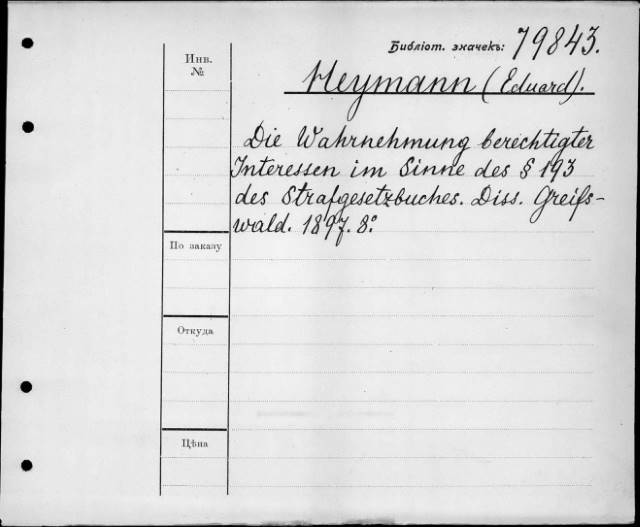 Библіот. значекъ: 79843.
Инв.
№
Heymann (Eduard).
Die Wahrnehmung berechtigter
Interessen im Sinne des § 193
des Strafgesetzbuches. Diss. Greifs-
wald. 1897. 8°.
По заказу
Откуда
Цѣна